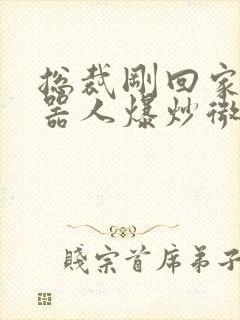 总裁刚回家
器人爆炒微
贱宗首席弟子